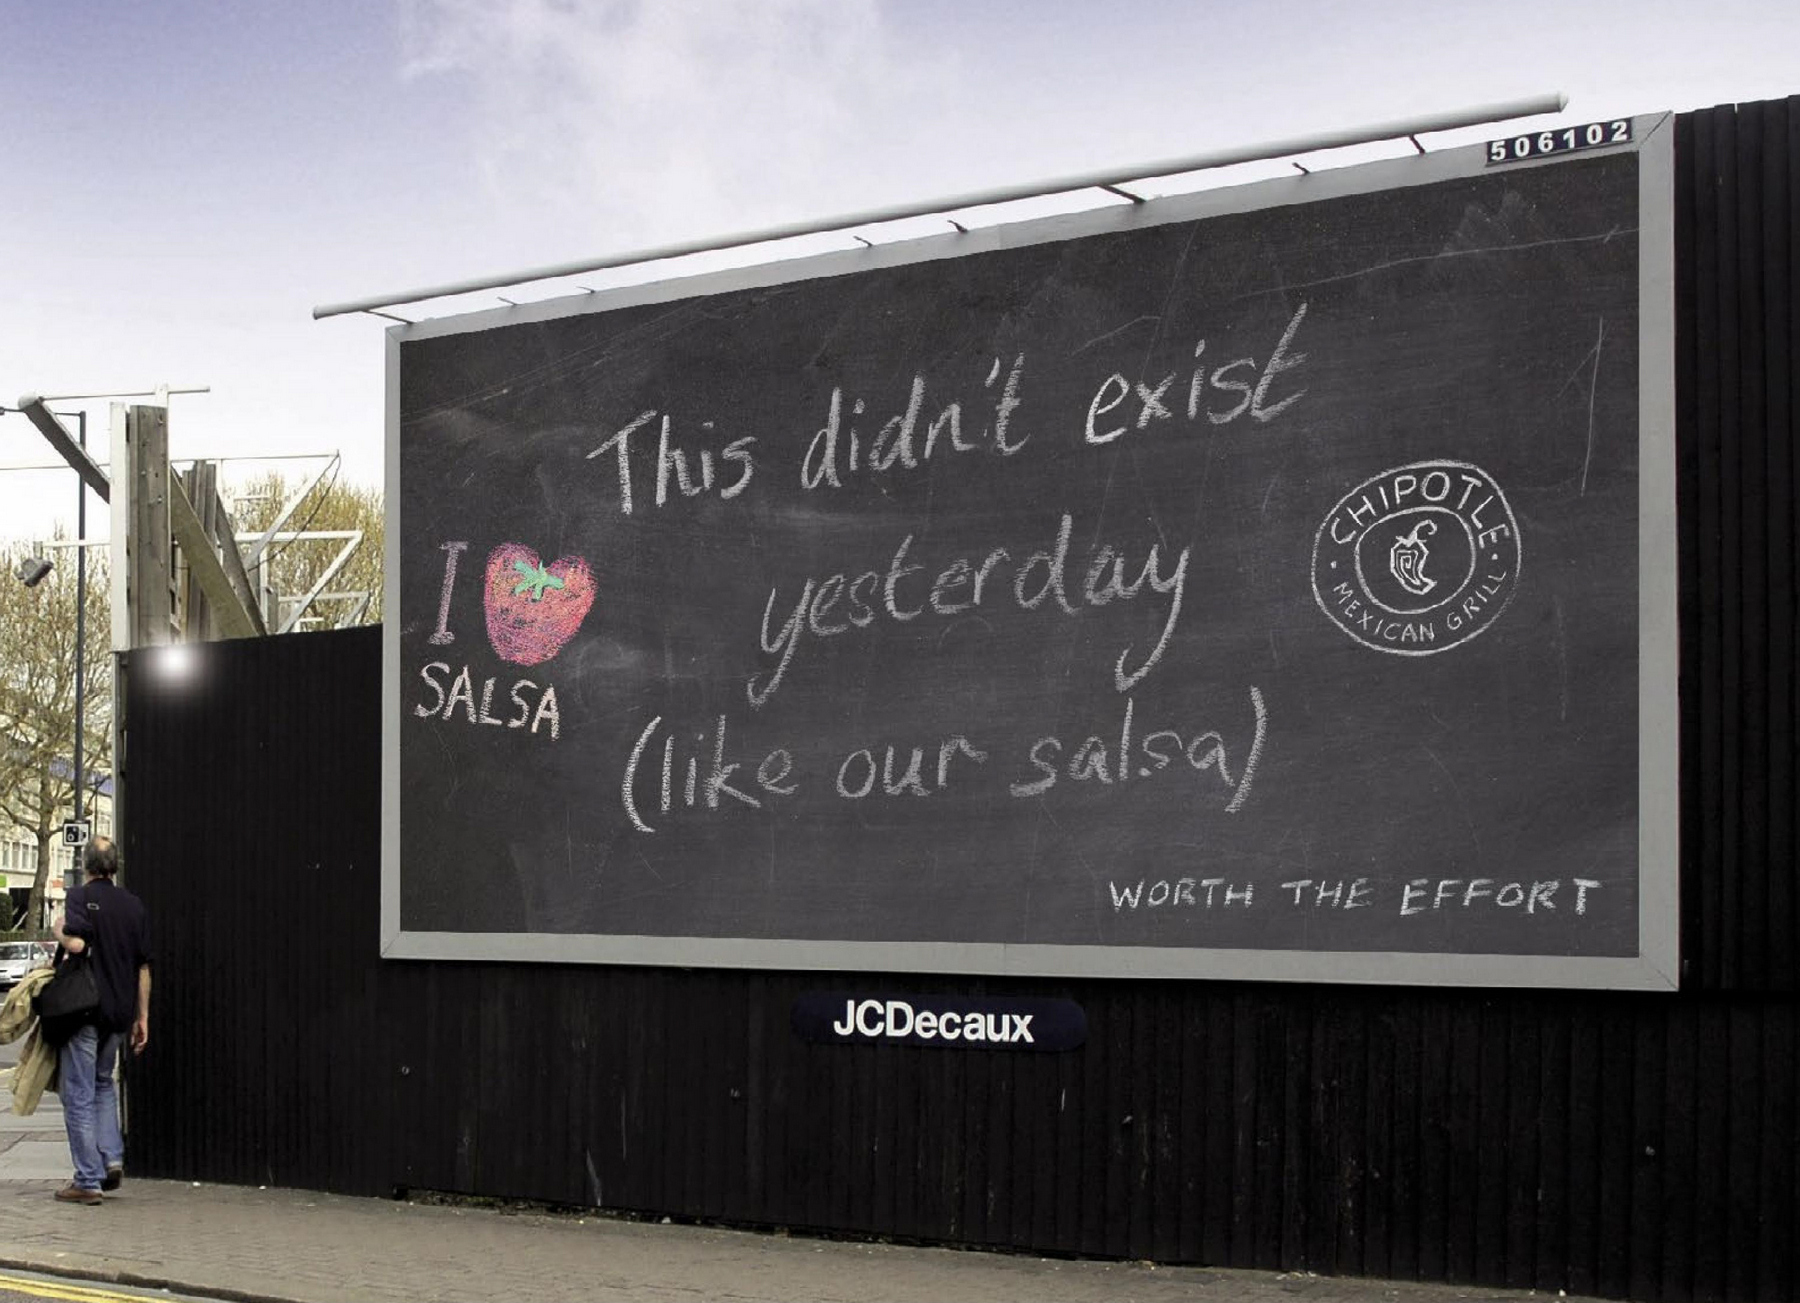 506102
This didn't exist
yesterday
(like our salsa)
I
SALSA
CHIPOTLE
MEXICAN GRILL
WORTH THE EFFORT
JCDecaux